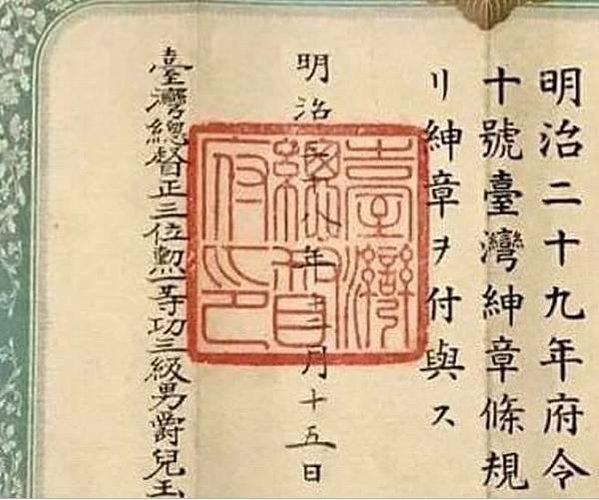 明治二十九年府令
十號臺灣紳章條規
リ紳章ヲ付與ス
明治十八年月十五日
臺灣總督正三位勲一等功三級男爵兒玉
臺灣
總督
府印